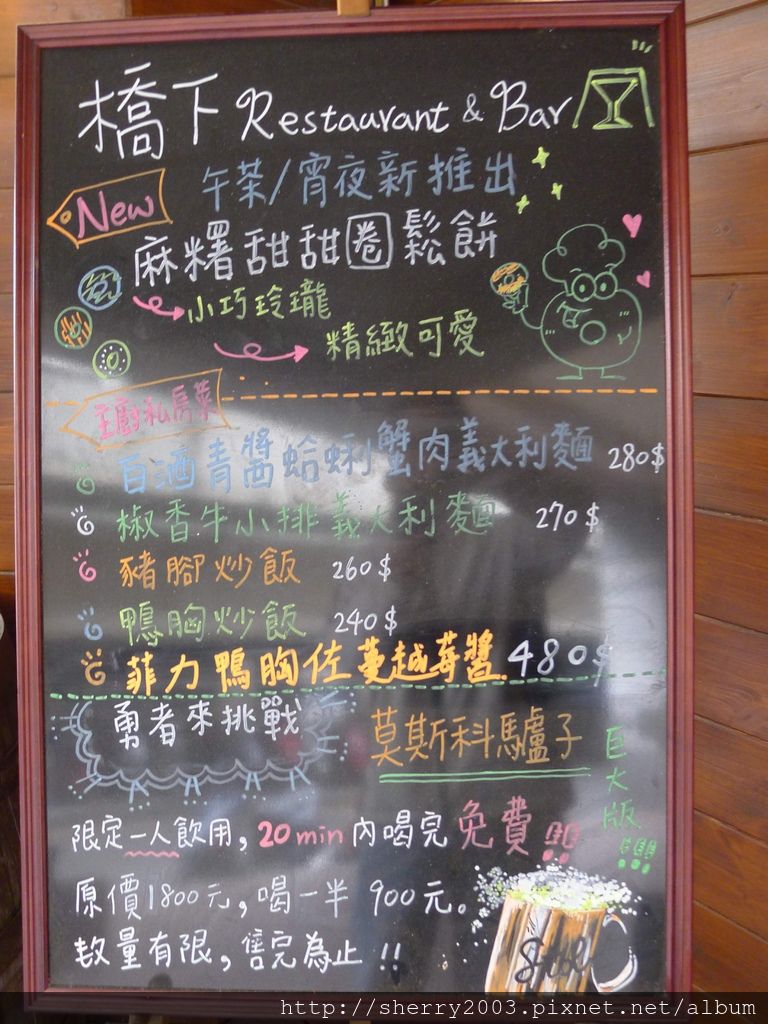 橋下 Restaurant & Bar
New
午茶/宵夜新推出
麻糬甜甜圈鬆餅
小巧玲瓏
精緻可愛
主廚私房菜
白酒青醬蛤蜊蟹肉義大利麵 280$
椒香牛小排義大利麵 270$
豬腳炒飯 260$
鴨胸炒飯 240$
菲力鴨胸佐蔓越莓醬. 480$
勇者來挑戰
莫斯科驢子
巨大版!!!
限定一人飲用, 20min內喝完 免費!!!
原價1800元, 喝一半 900元。
數量有限, 售完為止 !!
http://sherry2003.pixnet.net/album